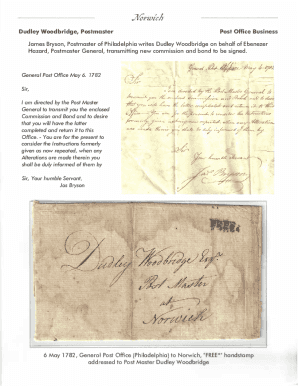 Norwich
Dudley Woodbridge, Postmaster
Post Office Business
James Bryson, Postmaster of Philadelphia writes Dudley Woodbridge on behalf of Ebeneser
Hazard, Postmaster General, transmitting new commission and bond to be signed.
General Post Office May 6. 1782
Sir,
I am directed by the Post Master
General to transmit you the enclosed
Commission and Bond and to desire
that you will have the latter
completed and return it to this
Office. - You are for the present to
consider the Instructions formerly
given as now repeated, when any
Alterations are made therein you
shall be duly informed of them by
Sir, Your humble Servant.
Jas Bryson
General Post Office May 6 1782
Sir
I am directed by the Postmaster General to
transmit you the enclosed Commission and Bond and to desire
that you will have the latter completed and return it to this
Office. You are for the present to consider the
Instructions formerly given as now repeated, when any Alterations
are made therein you shall be duly informed of them by
Your humble Servant
Jas Bryson
FREE
Dudley Woodbridge Esqr.
Post Master
at
Norwich
6 May 1782, General Post Office (Philadelphia) to Norwich, "FREE*" handstamp
addressed to Post Master Dudley Woodbridge